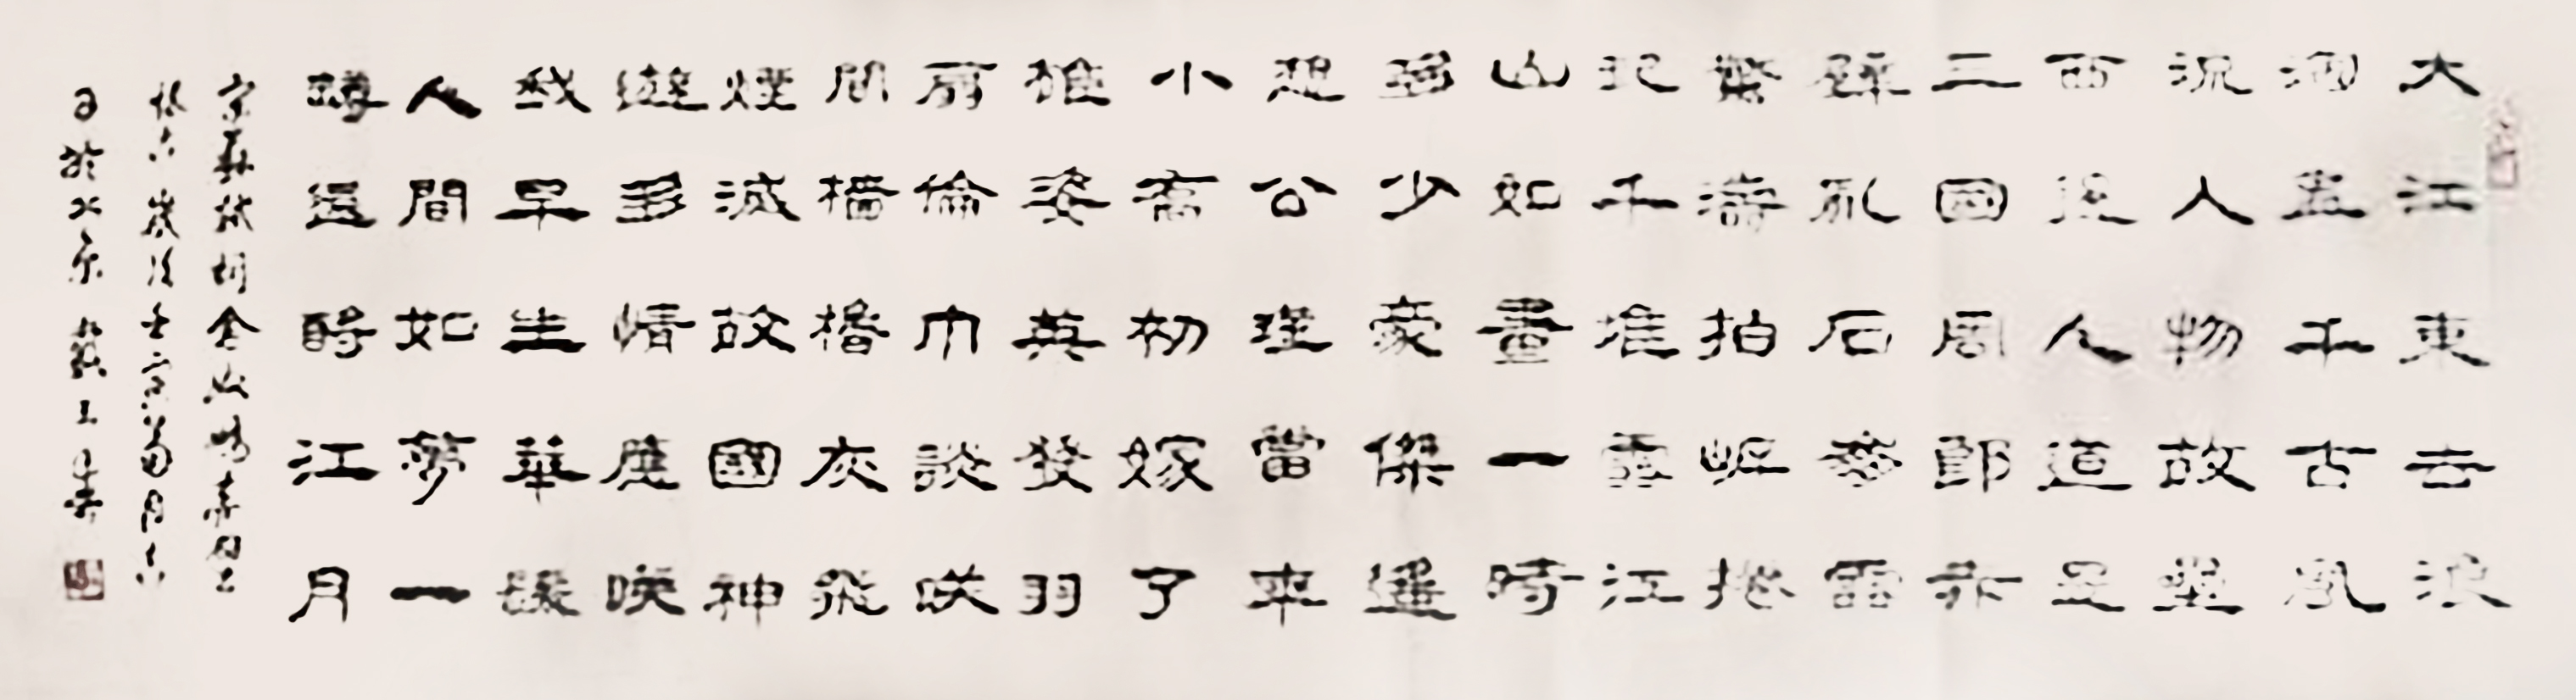 大江東去浪
淘盡千古風
流人物故壘
西邊人道是
三國周郎赤
壁亂石崩雲
驚濤拍岸捲
起千堆雪江
山如畫一時
多少豪傑遙
想公瑾當年
小喬初嫁了
雄姿英發羽
扇綸巾談笑
間檣櫓灰飛
煙滅故國神
遊多情應笑
我早生華髮
人間如夢一
樽還酹江月
宋蘇軾詞念奴嬌赤壁
懷古歲次壬寅菊月吉
日於北京